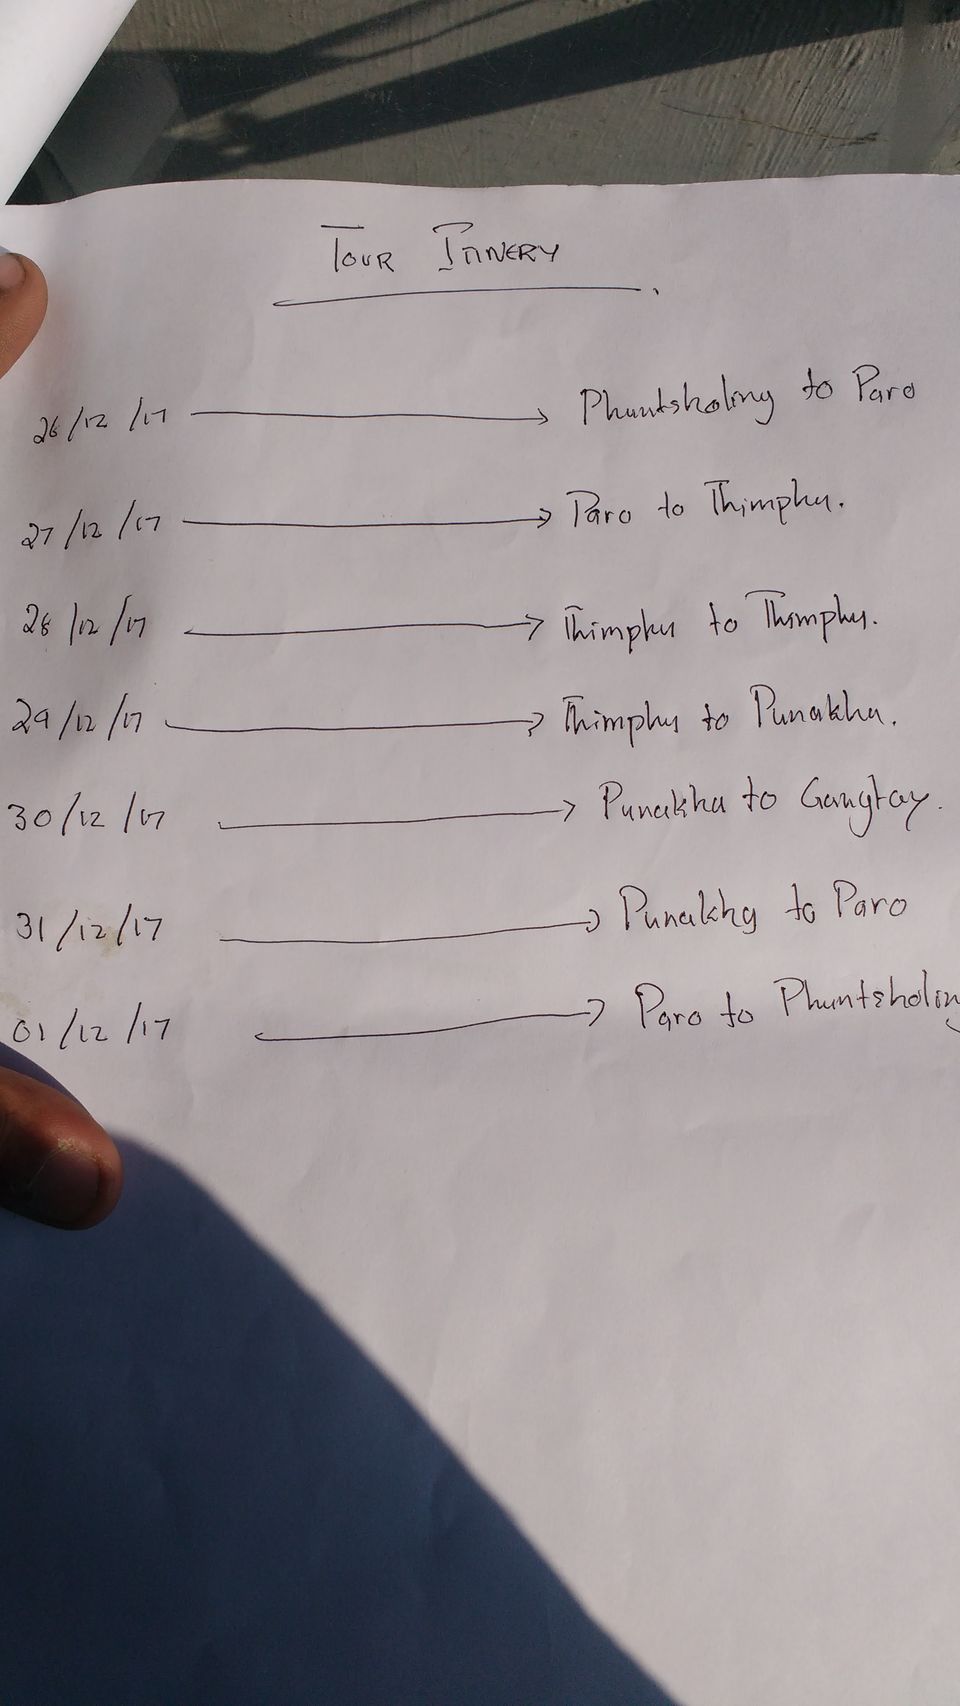 TOUR ITINERY
26/12/17 → Phuntsholing to Paro
27/12/17 → Paro to Thimphu.
28/12/17 → Thimphu to Thimphu.
29/12/17 → Thimphu to Punakha.
30/12/17 → Punakha to Gangtay.
31/12/17 → Punakha to Paro
01/12/17 → Paro to Phuntsholing